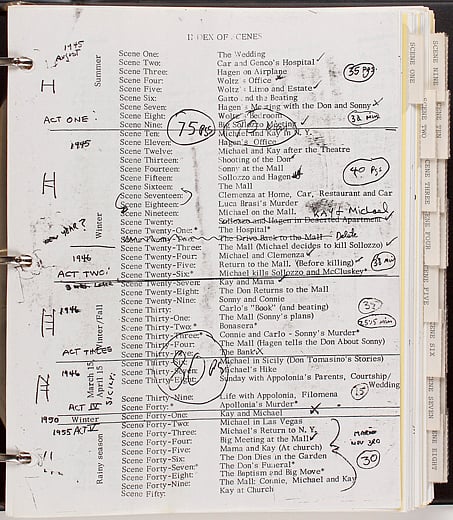 INDEX OF SCENES
1945
August
Summer
Scene One: The Wedding
Scene Two: Car and Genco's Hospital
Scene Three: Hagen on Airplane
35 pgs
Scene Four: Woltz's Office
Scene Five: Woltz' Limo and Estate
Scene Six: Gatto and the Beating
Scene Seven: Hagen's Meeting with the Don and Sonny
Scene Eight: Woltz' Bedroom
ACT ONE:
Scene Nine: Big Sollozzo Meeting
75 pgs
Scene Ten: Michael and Kay in N.Y.
1945
Scene Eleven: Hagen's Office
Scene Twelve: Michael and Kay after the Theatre
Scene Thirteen: Shooting of the Don
Scene Fourteen: The Mall
Scene Fifteen: Sollozzo and Hagen
40 pgs
Scene Sixteen: The Mall
Scene Seventeen: Clemenza at Home, Car, Restaurant and Car
Scene Eighteen: Luca Brasi's Murder
Winter
Scene Nineteen: Michael on the Mall, Kay & Michael
Scene Twenty: Sollozzo and Hagen in Deserted Apartment
NEW YEAR?
Scene Twenty-One:* The Hospital*
The Drive Back to the Mall Delete
Scene Twenty-Three: The Mall (Michael decides to kill Sollozzo)
1946
Scene Twenty-Four: Michael and Clemenza
Scene Twenty-Five: Return to the Mall. (Before killing)
ACT TWO:
Scene Twenty-Six:* Michael kills Sollozzo and McCluskey*
Scene Twenty-Seven: Kay and Mama
Scene Twenty-Eight: The Don Returns to the Mall
Scene Twenty-Nine: Sonny and Connie
1946
Winter/Fall
Scene Thirty: Carlo's "Book" (and beating)
Scene Thirty-One: The Mall (Sonny's plans)
Scene Thirty-Two:* Bonasera*
Scene Thirty-Three:* Connie and Carlo - Sonny's Murder*
Scene Thirty-Four: The Mall (Hagen tells the Don About Sonny)
ACT THREE
Scene Thirty-Five: The Bank
Scene Thirty-Six: Michael in Sicily (Don Tomasino's Stories)
1946
March 15
April 15
SICILY
Michael's Hike
Scene Thirty-Eight: Sunday with Apolonia's Parents, Courtship/
Wedding
15
Scene Thirty-Nine: Life with Apolonia, Filomena
ACT IV
Scene Forty:* Apollonia's Murder*
1950 Winter
Scene Forty-One: Kay and Michael
1955 ACT V
Rainy season
Scene Forty-Two: Michael in Las Vegas
Scene Forty-Three: Michael's Return to N.Y.
Scene Forty-Four: Big Meeting at the Mall
Scene Forty-Five: Mama and Kay (At church)
Scene Forty-Six: The Don Dies in the Garden
30
Scene Forty-Seven:* The Don's Funeral*
Scene Forty-Eight: The Baptism and Big Move*
Scene Forty-Nine: The Mall: Connie, Michael and Kay
Scene Fifty: Kay at Church
SCENE ONE
SCENE TWO
SCENE THREE
SCENE FOUR
SCENE FIVE
SCENE SIX
SCENE SEVEN
SCENE EIGHT
SCENE NINE
SCENE TEN